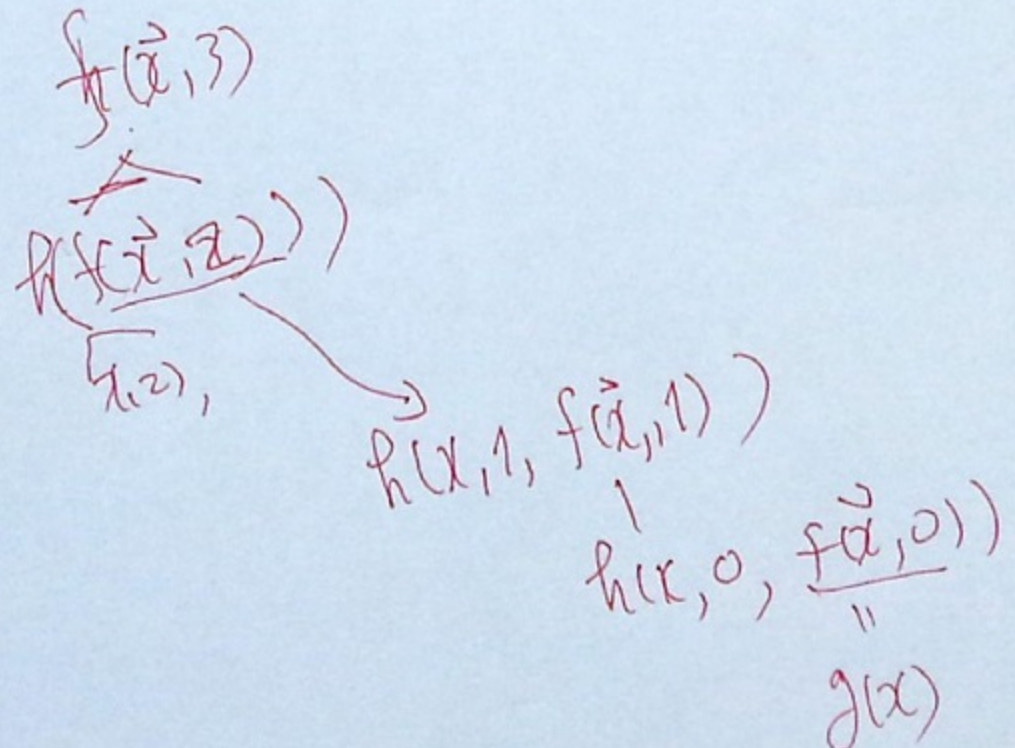 f(x⃗,3)
h(f(x⃗,2)))
x,2),
h(x,1, f(x⃗,1))
h(x,0, f(x⃗,0))
"
g(x)